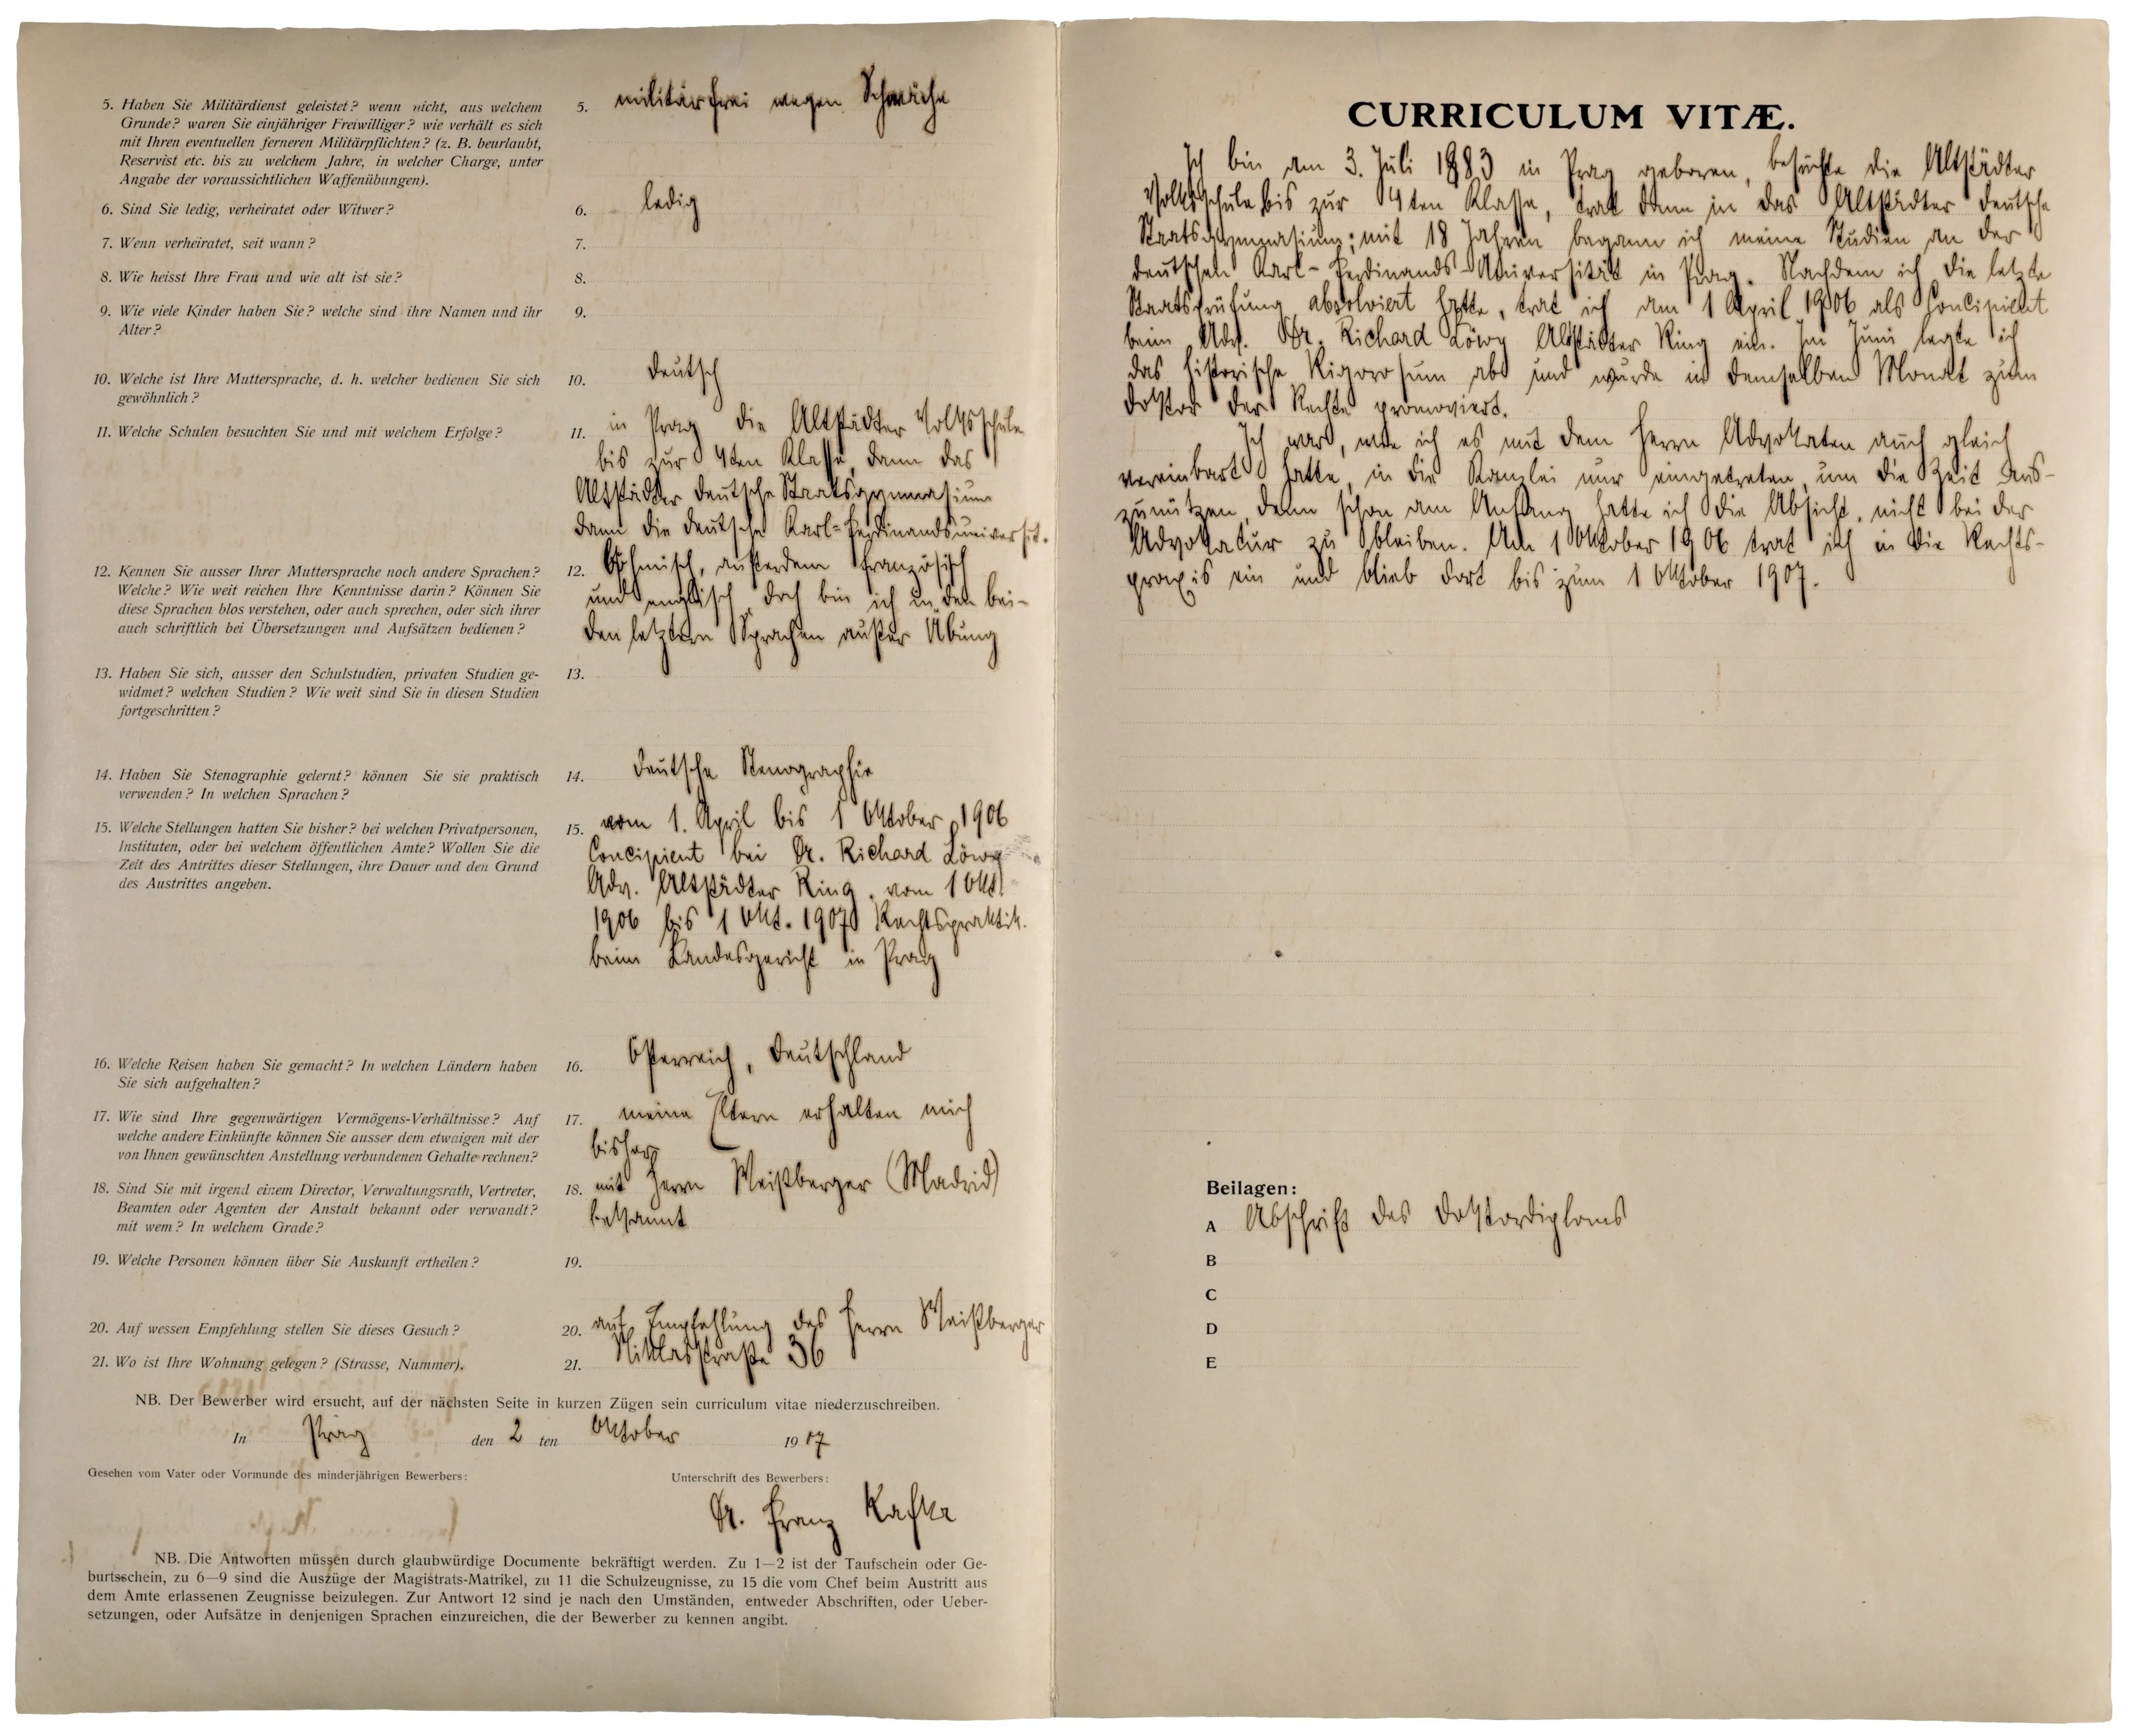 5. Haben Sie Militärdienst geleistet? wenn nicht, aus welchem
Grunde? waren Sie einjähriger Freiwilliger? wie verhält es sich
mit Ihren eventuellen ferneren Militärpflichten? (z. B. beurlaubt,
Reservist etc. bis zu welchem Jahre, in welcher Charge, unter
Angabe der voraussichtlichen Waffenübungen).
5. militärfrei wegen Schwäche
6. Sind Sie ledig, verheiratet oder Witwer?
6. ledig
7. Wenn verheiratet, seit wann?
7.
8. Wie heisst Ihre Frau und wie alt ist sie?
8.
9. Wie viele Kinder haben Sie? welche sind ihre Namen und ihr
Alter?
9.
10. Welche ist Ihre Muttersprache, d. h. welcher bedienen Sie sich
gewöhnlich?
10. deutsch
11. Welche Schulen besuchten Sie und mit welchem Erfolge?
11. in Prag die Altstädter Volksschule
bis zur 4ten Klasse, dann das
Altstädter deutsche Staatsgymnasium
dann die deutsche Karl-Ferdinandsuniversit.
12. Kennen Sie ausser Ihrer Muttersprache noch andere Sprachen?
Welche? Wie weit reichen Ihre Kenntnisse darin? Können Sie
diese Sprachen blos verstehen, oder auch sprechen, oder sich ihrer
auch schriftlich bei Übersetzungen und Aufsätzen bedienen?
12. Böhmisch, außerdem französisch
und englisch, doch bin ich in den bei-
den letztern Sprachen außer Übung
13. Haben Sie sich, ausser den Schulstudien, privaten Studien ge-
widmet? welchen Studien? Wie weit sind Sie in diesen Studien
fortgeschritten?
13.
14. Haben Sie Stenographie gelernt? können Sie sie praktisch
verwenden? In welchen Sprachen?
14. deutsche Stenographie
15. Welche Stellungen hatten Sie bisher? bei welchen Privatpersonen,
Instituten, oder bei welchem öffentlichen Amte? Wollen Sie die
Zeit des Antrittes dieser Stellungen, ihre Dauer und den Grund
des Austrittes angeben.
15. vom 1. April bis 1 Oktober 1906
Concipient bei Dr. Richard Löwy
Adv. Altstädter Ring, vom 1 Okt.
1906 bis 1 Okt. 1907 Rechtspraktik.
beim Landesgericht in Prag
16. Welche Reisen haben Sie gemacht? In welchen Ländern haben
Sie sich aufgehalten?
16. Österreich, Deutschland
17. Wie sind Ihre gegenwärtigen Vermögens-Verhältnisse? Auf
welche andere Einkünfte können Sie ausser dem etwaigen mit der
von Ihnen gewünschten Anstellung verbundenen Gehalte rechnen?
17. meine Eltern erhalten mich
bisher
18. Sind Sie mit irgend einem Director, Verwaltungsrath, Vertreter,
Beamten oder Agenten der Anstalt bekannt oder verwandt?
mit wem? In welchem Grade?
18. mit Herrn Weißberger (Madrid)
bekannt
19. Welche Personen können über Sie Auskunft ertheilen?
19.
20. Auf wessen Empfehlung stellen Sie dieses Gesuch?
20. auf Empfehlung des Herrn Weißberger
21. Wo ist Ihre Wohnung gelegen? (Strasse, Nummer).
21. Niklasstraße 36
NB. Der Bewerber wird ersucht, auf der nächsten Seite in kurzen Zügen sein curriculum vitae niederzuschreiben.
In Prag den 2 ten Oktober 1907
Gesehen vom Vater oder Vormunde des minderjährigen Bewerbers:
Unterschrift des Bewerbers:
Dr. Franz Kafka
NB. Die Antworten müssen durch glaubwürdige Documente bekräftigt werden. Zu 1—2 ist der Taufschein oder Ge-
burtsschein, zu 6—9 sind die Auszüge der Magistrats-Matrikel, zu 11 die Schulzeugnisse, zu 15 die vom Chef beim Austritt aus
dem Amte erlassenen Zeugnisse beizulegen. Zur Antwort 12 sind je nach den Umständen, entweder Abschriften, oder Ueber-
setzungen, oder Aufsätze in denjenigen Sprachen einzureichen, die der Bewerber zu kennen angibt.
CURRICULUM VITÆ.
Ich bin am 3. Juli 1883 in Prag geboren, besuchte die Altstädter
Volksschule bis zur 4ten Klasse, trat dann in das Altstädter deutsche
Staatsgymnasium; mit 18 Jahren begann ich meine Studien an der
deutschen Karl-Ferdinands-Universität in Prag. Nachdem ich die letzte
Staatsprüfung absolviert hatte, trat ich am 1 April 1906 als Concipient
beim Adv. Dr. Richard Löwy Altstädter Ring ein. Im Juni legte ich
das historische Rigorosum ab und wurde in demselben Monat zum
Doktor der Rechte promoviert.
Ich war, wie ich es mit dem Herrn Advokaten auch gleich
vereinbart hatte, in die Kanzlei nur eingetreten, um die Zeit aus-
zunützen, denn schon am Anfang hatte ich die Absicht, nicht bei der
Advokatur zu bleiben. Am 1 Oktober 1906 trat ich in die Rechts-
praxis ein und blieb dort bis zum 1 Oktober 1907.
Beilagen:
A Abschrift des Doktordiploms
B
C
D
E